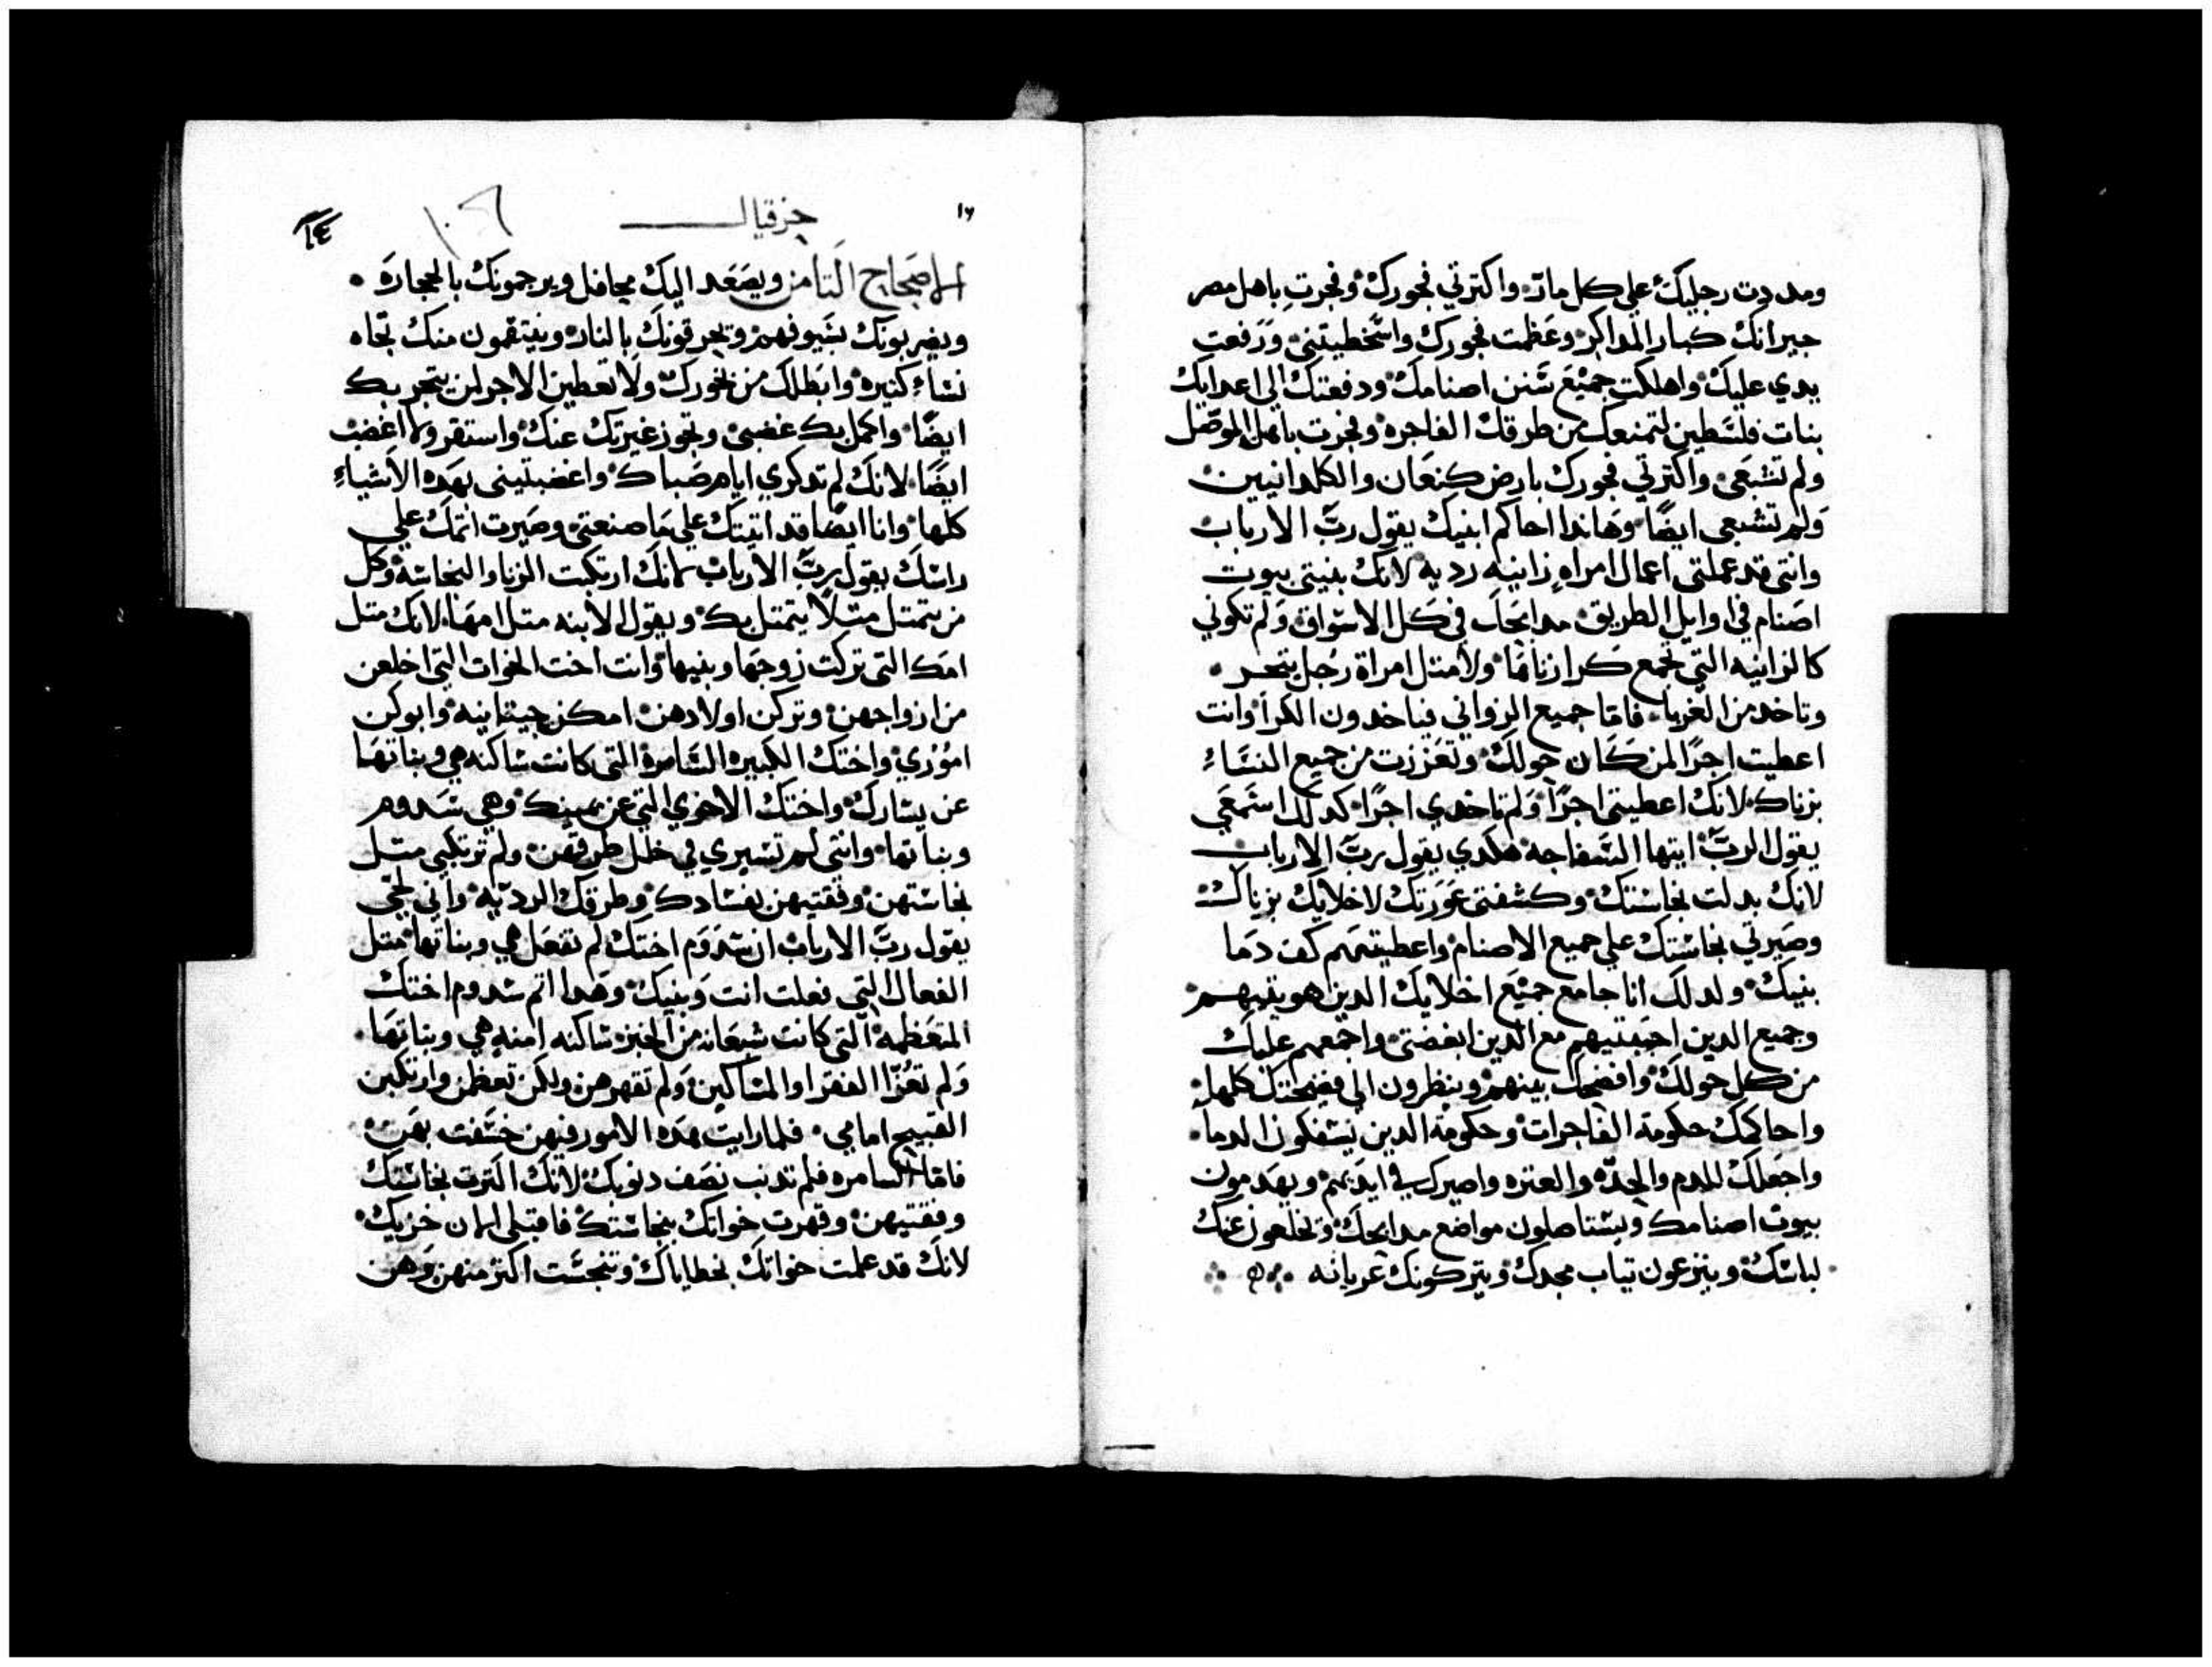 ومددت رجليك علي كل مار واكترتي فجورك وفجرت باهل مصر
جيرانك كبار المداكر وعظمت فجورك واسخطيتني ورفعت
يدي عليك واهلكت جميع سنن اصنامك ودفعتك الي اعدايك
بنات فلسطين لتمنعك من طرقك الفاجره وفجرت باهل الموصل
ولم تشبعي واكترتي فجورك بارض كنعان والكلدانيين
ولم تشبعي ايضا وهاندا احاكم ابنيك يقول رب الارباب
وانتي قد عملتي اعمال امراه زانيه رديه لانك بنيتي بيوت
اصنام في اوايل الطريق مدابحك في كل الاسواق ولم تكوني
كالزانيه التي تجمع كرا زناها ولا متل امراة رجل
وتاخد من الغربا فاما جميع الزواني فياخدون الكرا وانت
اعطيت اجرا لمن كان حولك وتعززت من جميع النساء
بزناك لانك اعطيتي اجرا ولم تاخدي اجرا كدلك اسمعي
يقول الرب ايتها السفاجه هكدي يقول رب الارباب
لانك بدلت نجاستك وكشفتي عورتك لاخلايك بزناك
وصيرتي نجاستك علي جميع الاصنام واعطيتهم كف دما
بنيك ولدلك انا جامع جميع اخلايك الدين هويتيهم
وجميع الدين احببتيهم مع الدين ابغضتي واجمعهم عليك
من كل حولك وافضحك بينهم وينظرون الي فضيحتك كلها
واحاكمك حكومة الفاجرات وحكومة الدين يسفكون الدما
واجعلك للدم والحده والعتره واصيرك في ايديهم ويهدمون
بيوت اصنامك ويستاصلون مواضع مدابحك ويخلعون عنك
لباسك وينزعون تياب مجدك ويتركونك عريانه
١٦ حزقيال
الاصحاح التامن ويصعد اليك محافل ويرجمونك بالحجاره
ويضربونك بسيوفهم ويحرقونك بالنار وينتقمون منك تجاه
نساء كتيره وابطلك من فجورك ولا تعطين الاجر لمن يتجر بك
ايضا واكمل بك غضبي وتجوز غيرتي عنك واستقر ولا اغضب
ايضا لانك لم تدكري ايام صباك واغضبتيني بهده الاشياء
كلها وانا ايضا قد اتيتك علي ما صنعتي وصيرت اتمك علي
راسك يقول رب الارباب لانك ارتكبت الزنا والنجاسه وكل
من يتمتل متلا يتمتل بك ويقول الابنه متل امها لانك متل
امك التي تركت زوجها وبنيها وانت اخت الخوات التي اخلعن
من ازواجهن وتركن اولادهن امكن حيتانيه وابوكن
اموري واختك الكبيره السامرة التي كانت ساكنه هي وبناتها
عن يسارك واختك الاخري التي عن يمينك وهي سدوم
وبناتها وانتي لم تسيري في خلل طرقهن ولم ترتكبي متل
نجاستهن وفقتيهن بفسادك وطرقك الرديه واني لحي
يقول رب الارباب ان سدوم اختك لم تفعل هي وبناتها متل
الفعال التي فعلت انت وبنيك وهدا اتم سدوم اختك
المتعظمه التي كانت شبعانه من الخبز ساكنه امنه هي وبناتها
ولم تعزا الفقرا والمساكين ولم تقهرهن ولكن تعظمن وارتكبن
القبيح امامي فلما رايت هده الامور فيهن خسفت بهن
فاما السامره فلم تدنب نصف دنوبك لانك اكترت نجاستك
وفقتيهن وقهرت خواتك بنجاستك فاقبلي الان خزيك
لانك قد عملت خواتك بخطاياك وتنجست اكتر منهن وهن